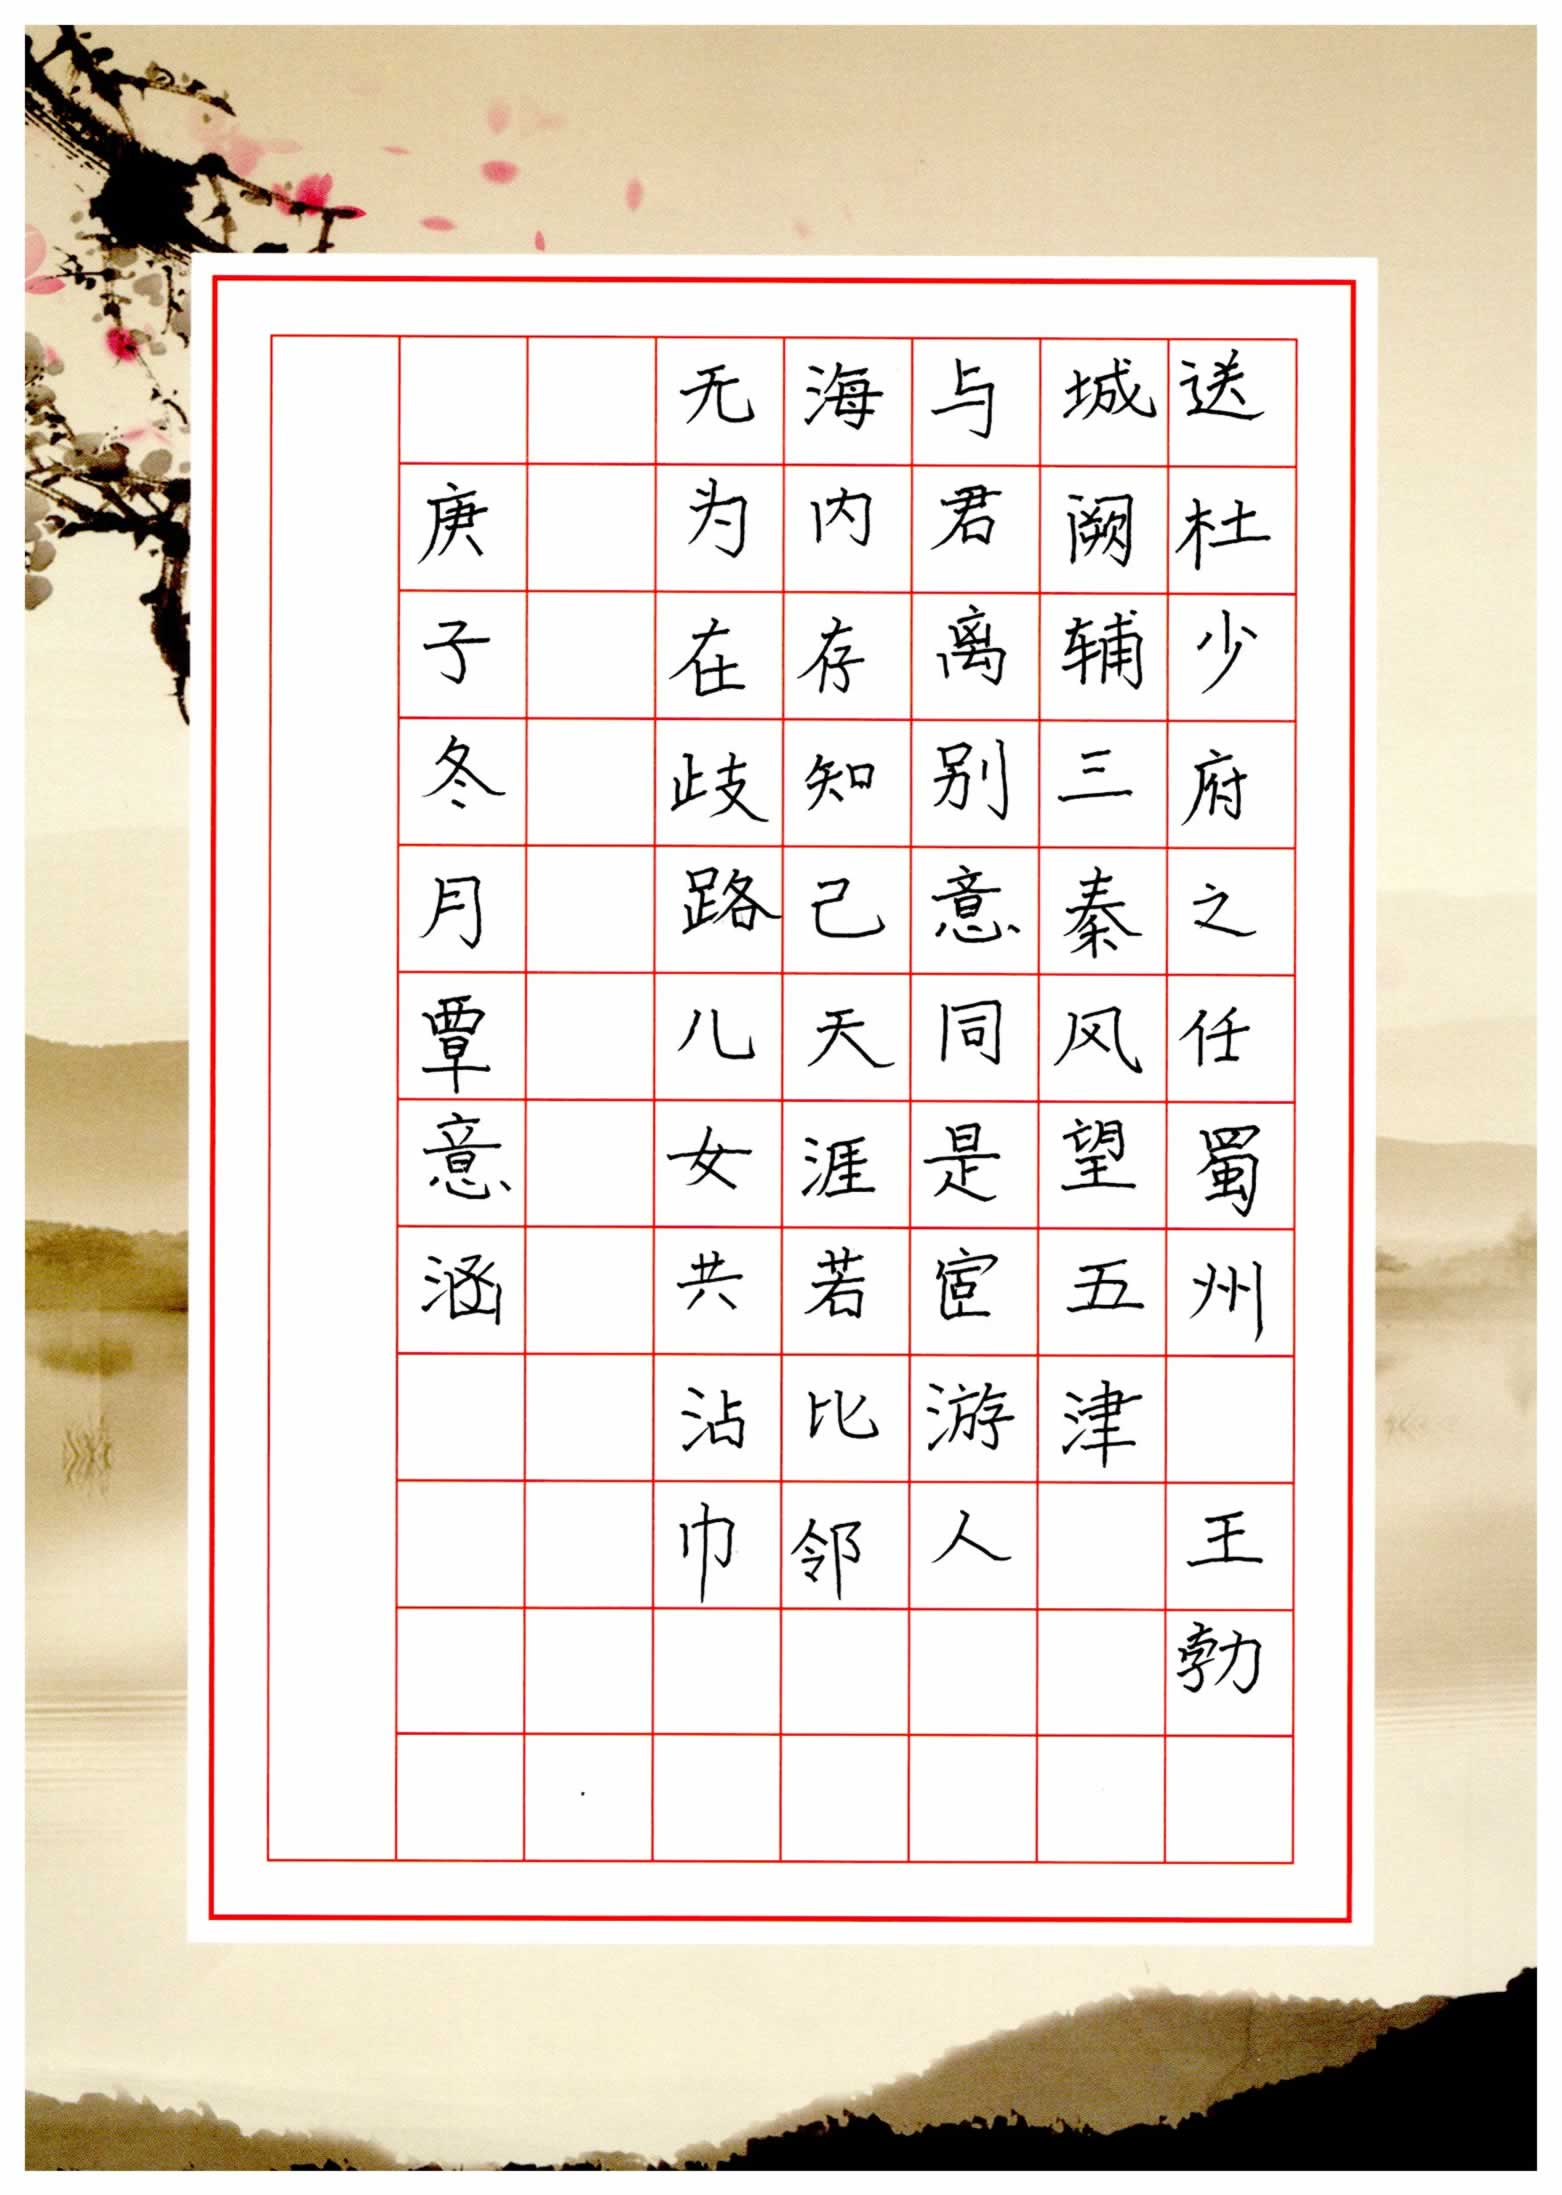 送杜少府之任蜀州 王勃
城阙辅三秦风望五津
与君离别意同是宦游人
海内存知己天涯若比邻
无为在歧路儿女共沾巾
庚子冬月覃意涵